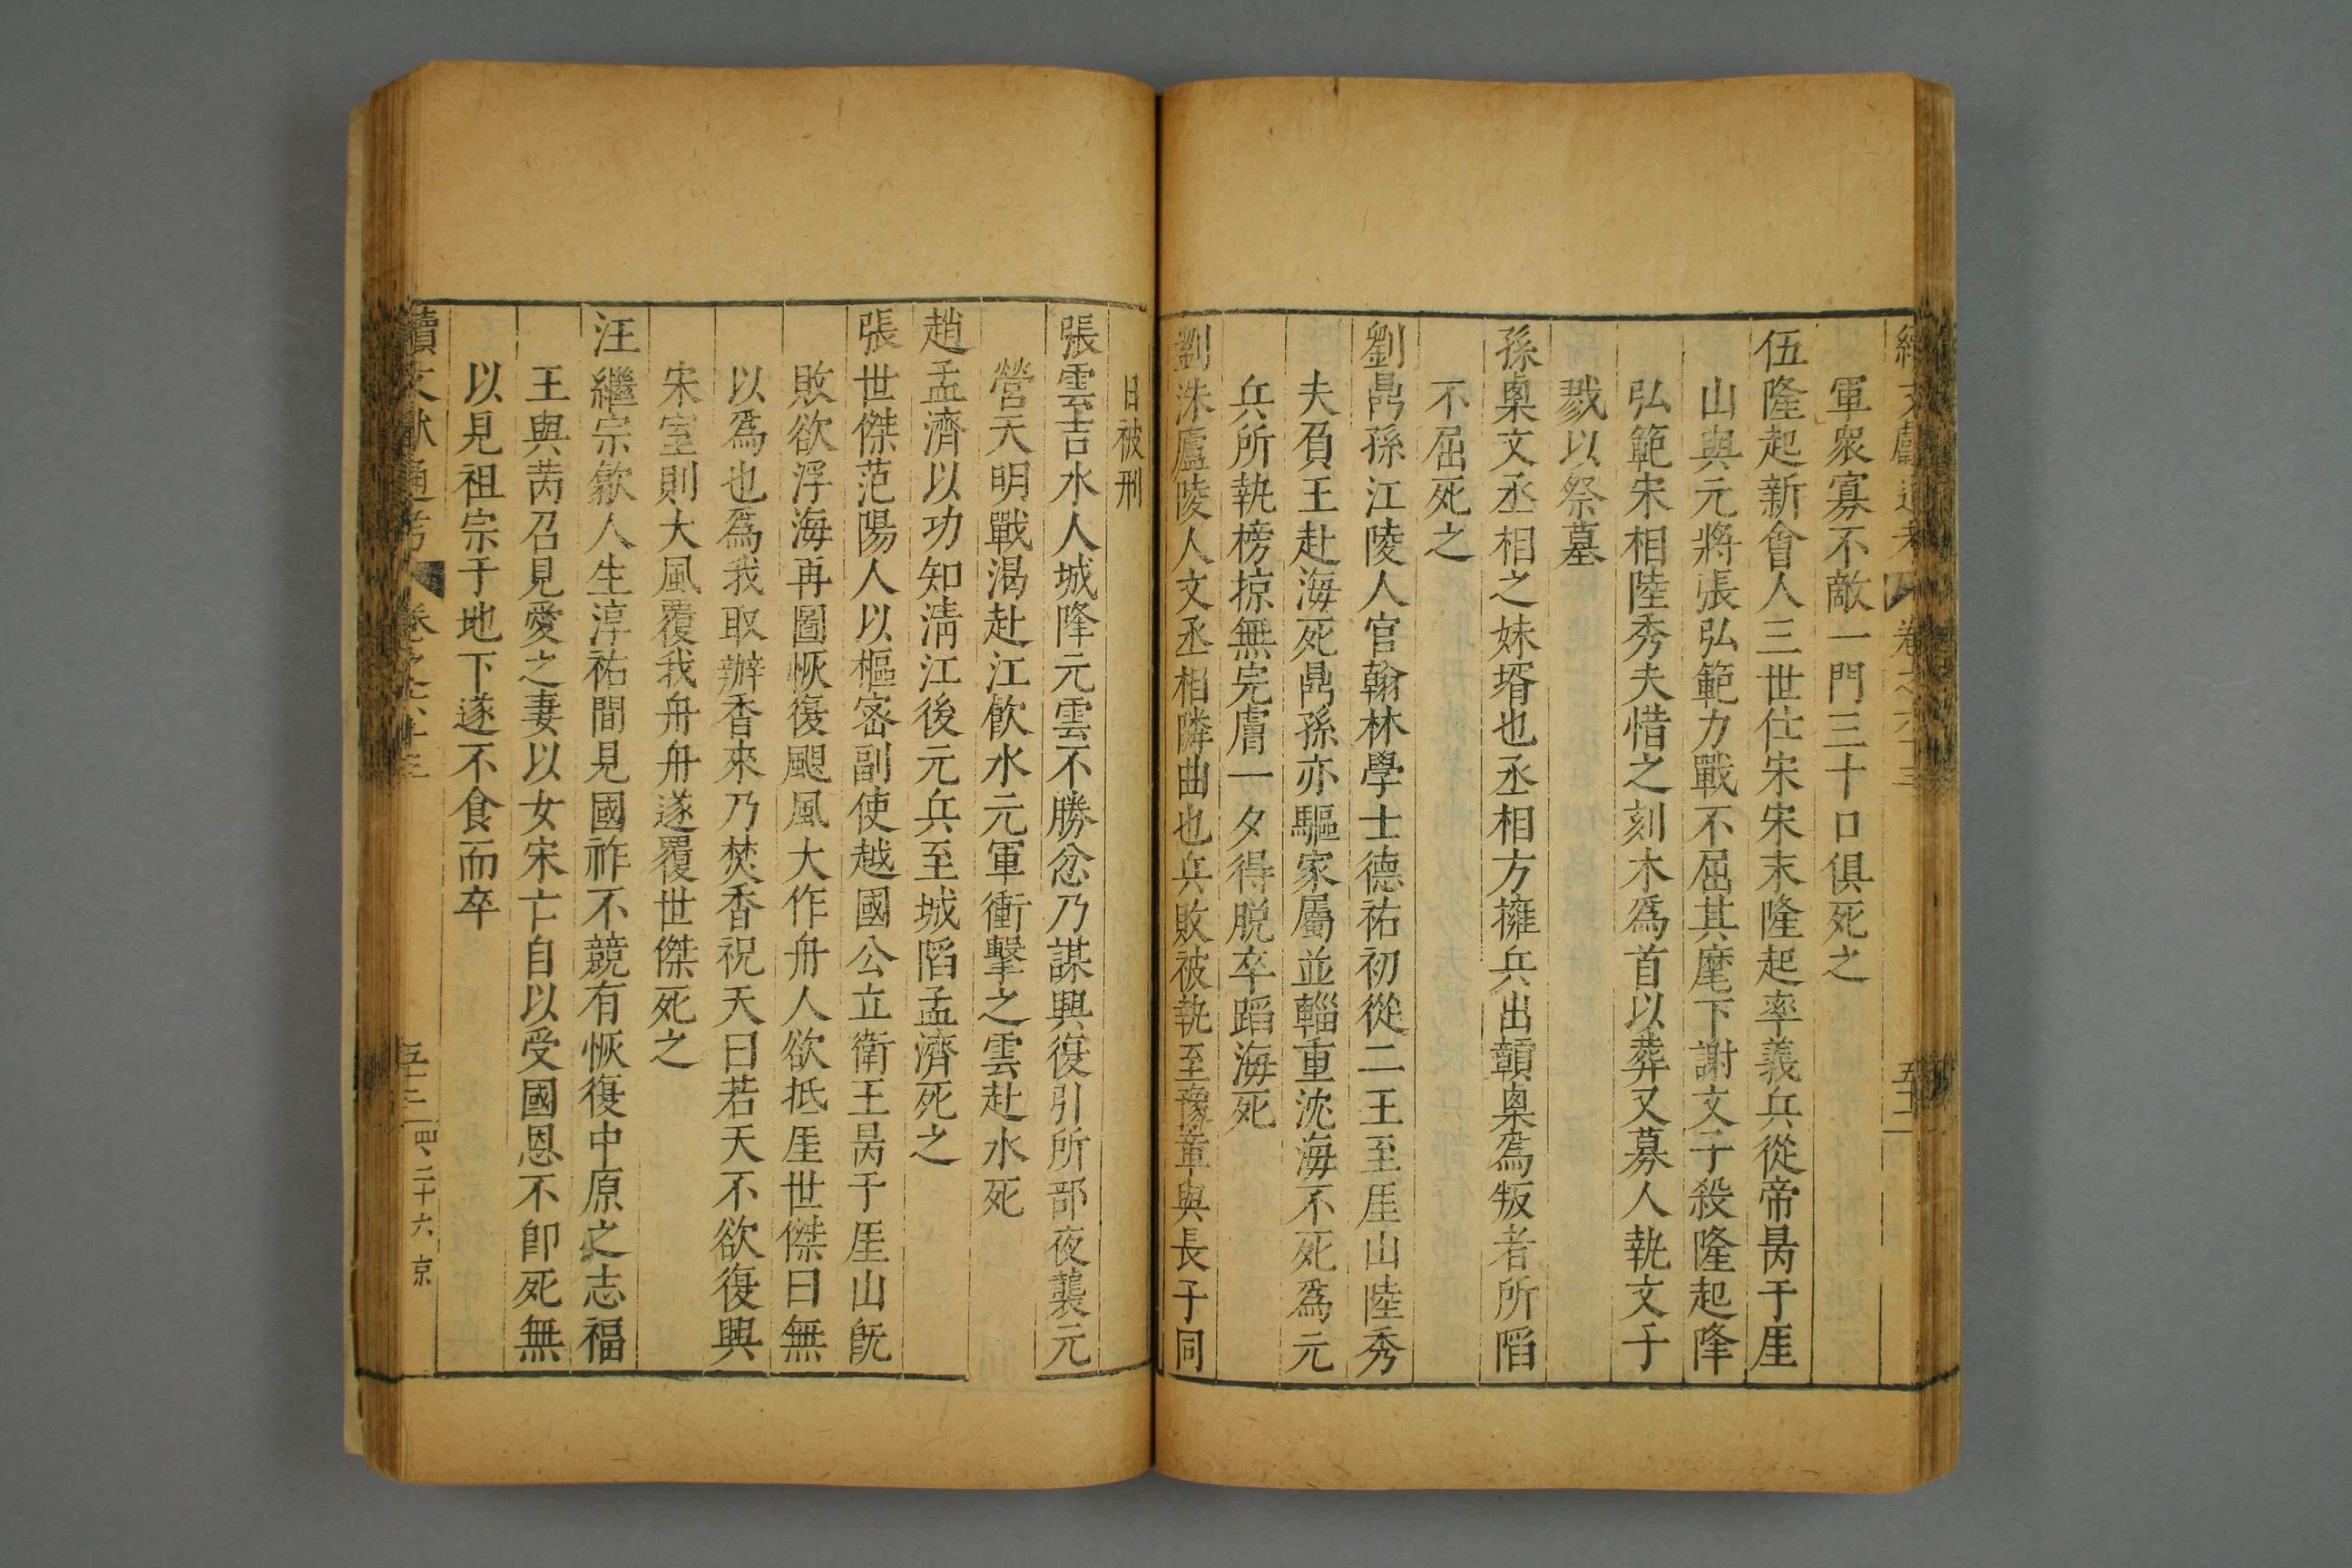 續文獻通考 卷之六十三 五十二
軍衆寡不敵一門三十口俱死之
伍隆起新會人三世仕宋宋末隆起率義兵從帝昺于厓
山與元將張弘範力戰不屈其麾下謝文子殺隆起降
弘範宋相陸秀夫惜之刻木爲首以葬又募人執文子
戮以祭墓
孫㮚文丞相之妹壻也丞相方擁兵出贑㮚爲叛者所䧟
不屈死之
劉鼎孫江陵人官翰林學士德祐初從二王至厓山陸秀
夫負王赴海死鼎孫亦驅家屬並輜重沈海不死爲元
兵所執榜掠無完膚一夕得脱卒蹈海死
劉洙廬陵人文丞相隣曲也兵敗被執至豫章與長子同
日被刑
張雲吉水人城降元雲不勝忿乃謀興復引所部夜襲元
營天明戰渴赴江飲水元軍衝擊之雲赴水死
趙孟濟以功知清江後元兵至城䧟孟濟死之
張世傑范陽人以樞宻副使越國公立衛王昺于厓山旣
敗欲浮海再圖恢復颶風大作舟人欲抵厓世傑曰無
以爲也爲我取辦香來乃焚香祝天曰若天不欲復興
宋室則大風覆我舟舟遂覆世傑死之
汪繼宗歙人生淳祐間見國祚不競有恢復中原之志福
王與芮召見愛之妻以女宋亡自以受國恩不卽死無
以見祖宗于地下遂不食而卒
續文獻通考 卷之六十三 五十三 四、二十六 京